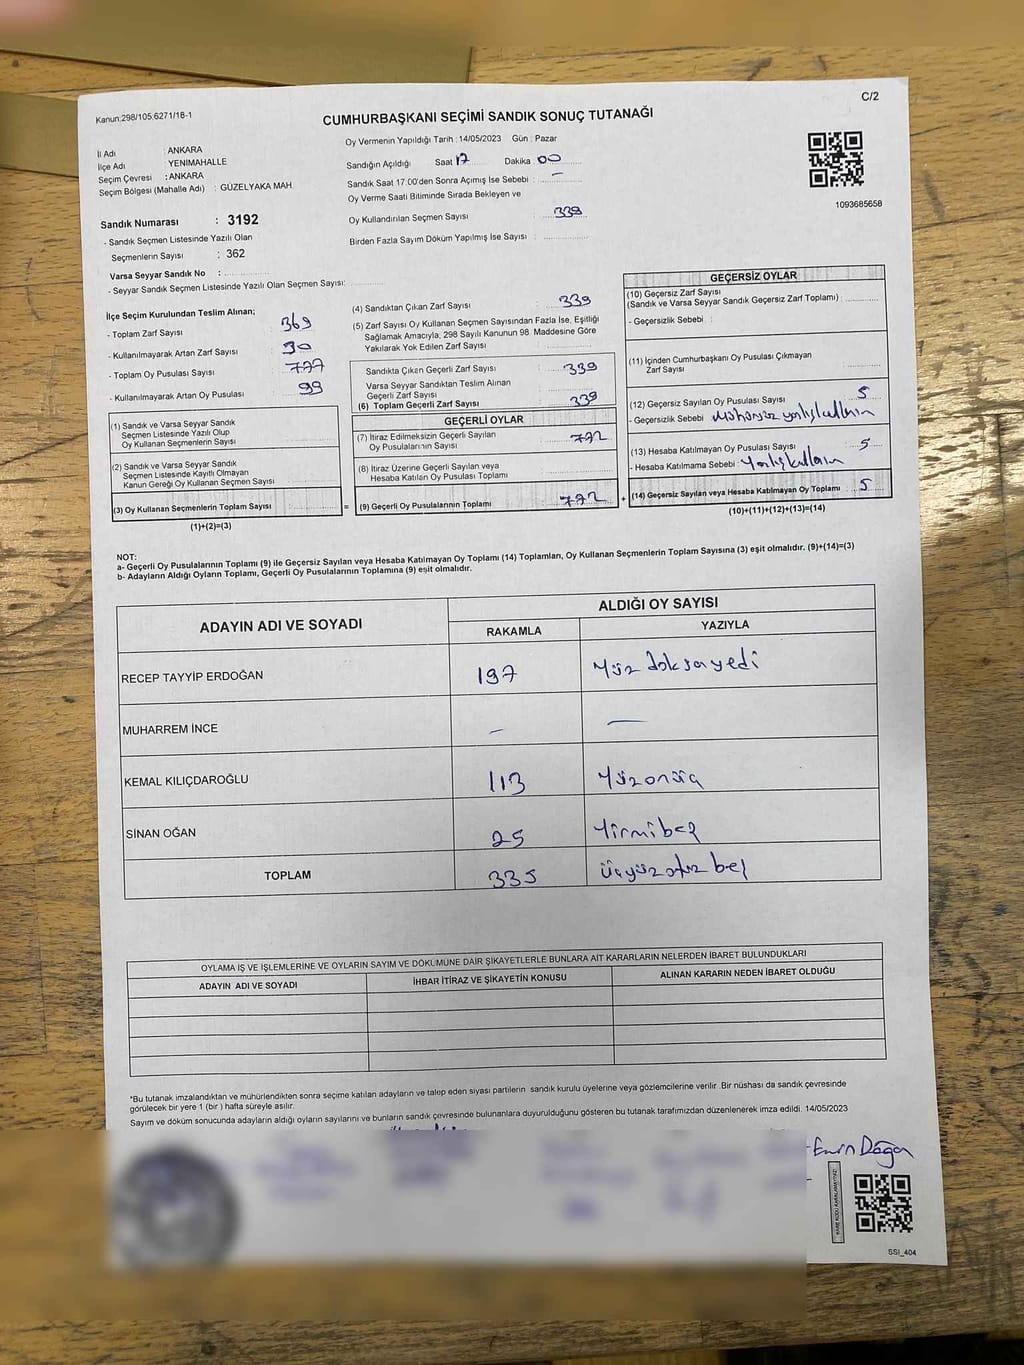 Kanun:298/105:6271/18-1
C/2
CUMHURBAŞKANI SEÇİMİ SANDIK SONUÇ TUTANAĞI
Oy Vermenin Yapıldığı Tarih : 14/05/2023 Gün : Pazar
İl Adı : ANKARA
İlçe Adı : YENİMAHALLE
Seçim Çevresi : ANKARA
Seçim Bölgesi (Mahalle Adı) : GÜZELYAKA MAH.
Sandığın Açıldığı Saat 17 Dakika 00
Sandık Saat 17:00'den Sonra Açımış İse Sebebi : –
Oy Verme Saati Bitiminde Sırada Bekleyen ve
Oy Kullandırılan Seçmen Sayısı 339
Birden Fazla Sayım Döküm Yapılmış İse Sayısı :
1093685658
Sandık Numarası : 3192
- Sandık Seçmen Listesinde Yazılı Olan
Seçmenlerin Sayısı : 362
Varsa Seyyar Sandık No :
- Seyyar Sandık Seçmen Listesinde Yazılı Olan Seçmen Sayısı:
İlçe Seçim Kurulundan Teslim Alınan;
- Toplam Zarf Sayısı 369
- Kullanılmayarak Artan Zarf Sayısı 30
- Toplam Oy Pusulası Sayısı
- Kullanılmayarak Artan Oy Pusulası 99
(1) Sandık ve Varsa Seyyar Sandık
Seçmen Listesinde Yazılı Olup
Oy Kullanan Seçmenlerin Sayısı
(2) Sandık ve Varsa Seyyar Sandık
Seçmen Listesinde Kayıtlı Olmayan
Kanun Gereği Oy Kullanan Seçmen Sayısı
(3) Oy Kullanan Seçmenlerin Toplam Sayısı :
(1)+(2)=(3)
(4) Sandıktan Çıkan Zarf Sayısı : 339
(5) Zarf Sayısı Oy Kullanan Seçmen Sayısından Fazla İse, Eşitliği
Sağlamak Amacıyla, 298 Sayılı Kanunun 98. Maddesine Göre
Yakılarak Yok Edilen Zarf Sayısı
Sandıkta Çıkan Geçerli Zarf Sayısı : 339
Varsa Seyyar Sandıktan Teslim Alınan
Geçerli Zarf Sayısı
(6) Toplam Geçerli Zarf Sayısı 339
GEÇERLİ OYLAR
(7) İtiraz Edilmeksizin Geçerli Sayılan
Oy Pusulalarının Sayısı
(8) İtiraz Üzerine Geçerli Sayılan veya
Hesaba Katılan Oy Pusulası Toplamı
= (9) Geçerli Oy Pusulalarının Toplamı +
GEÇERSİZ OYLAR
(10) Geçersiz Zarf Sayısı
(Sandık ve Varsa Seyyar Sandık Geçersiz Zarf Toplamı) :
- Geçersizlik Sebebi :
(11) İçinden Cumhurbaşkanı Oy Pusulası Çıkmayan
Zarf Sayısı
(12) Geçersiz Sayılan Oy Pusulası Sayısı : 5
- Geçersizlik Sebebi
(13) Hesaba Katılmayan Oy Pusulası Sayısı : 5
- Hesaba Katılmama Sebebi :
(14) Geçersiz Sayılan veya Hesaba Katılmayan Oy Toplamı : 5
(10)+(11)+(12)+(13)=(14)
NOT:
a- Geçerli Oy Pusulalarının Toplamı (9) ile Geçersiz Sayılan veya Hesaba Katılmayan Oy Toplamı (14) Toplamları, Oy Kullanan Seçmenlerin Toplam Sayısına (3) eşit olmalıdır. (9)+(14)=(3)
b- Adayların Aldığı Oyların Toplamı, Geçerli Oy Pusulalarının Toplamına (9) eşit olmalıdır.
ADAYIN ADI VE SOYADI
ALDIĞI OY SAYISI
RAKAMLA YAZIYLA
RECEP TAYYİP ERDOĞAN 197 Yüz doksanyedi
MUHARREM İNCE – –
KEMAL KILIÇDAROĞLU 113 Yüzonüç
SİNAN OĞAN 25 Yirmibeş
TOPLAM 335 Üçyüzotuz beş
OYLAMA İŞ VE İŞLEMLERİNE VE OYLARIN SAYIM VE DÖKÜMÜNE DAİR ŞİKAYETLERLE BUNLARA AİT KARARLARIN NELERDEN İBARET BULUNDUKLARI
ADAYIN ADI VE SOYADI İHBAR İTİRAZ VE ŞİKAYETİN KONUSU ALINAN KARARIN NEDEN İBARET OLDUĞU
*Bu tutanak imzalandıktan ve mühürlendikten sonra seçime katılan adayların ve talep eden siyasi partilerin sandık kurulu üyelerine veya gözlemcilerine verilir .Bir nüshası da sandık çevresinde
görülecek bir yere 1 (bir ) hafta süreyle asılır.
Sayım ve döküm sonucunda adayların aldığı oyların sayılarını ve bunların sandık çevresinde bulunanlara duyurulduğunu gösteren bu tutanak tarafımızdan düzenlenerek imza edildi. 14/05/2023
Emin Doğan
SSI_404